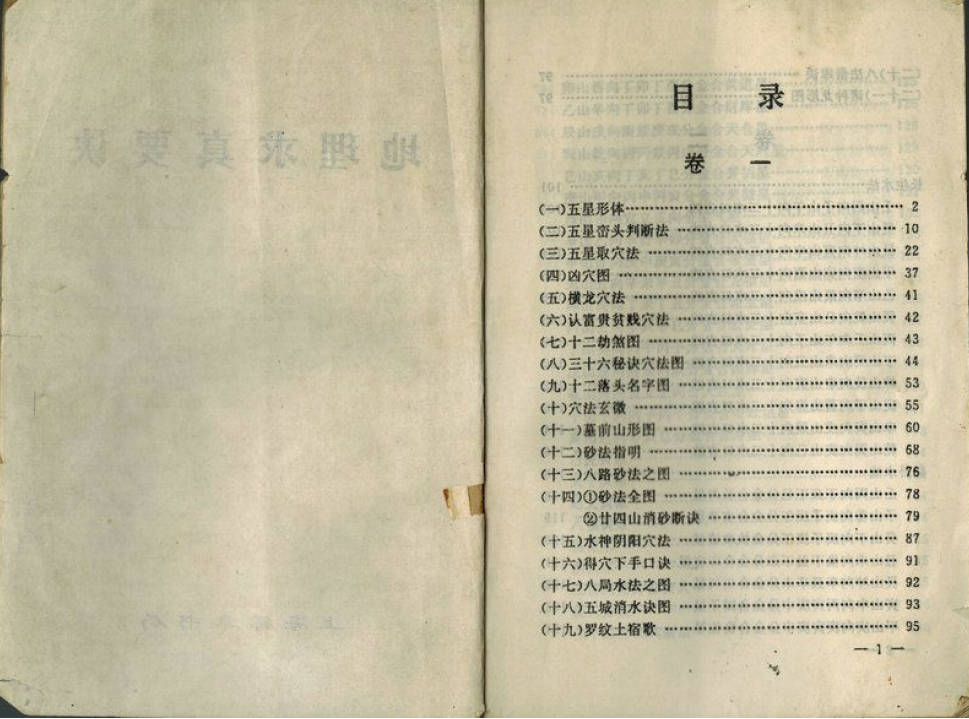 地理求真要诀
目录
卷一
(一)五星形体 2
(二)五星峦头判断法 10
(三)五星取穴法 22
(四)凶穴图 37
(五)横龙穴法 41
(六)认富贵贫贱穴法 42
(七)十二劫煞图 43
(八)三十六秘诀穴法图 44
(九)十二落头名字图 53
(十)穴法玄微 55
(十一)墓前山形图 60
(十二)砂法指明 68
(十三)八路砂法之图 76
(十四)①砂法全图 78
②廿四山消砂断诀 79
(十五)水神阴阳穴法 87
(十六)得穴下手口诀 91
(十七)八局水法之图 92
(十八)五城消水诀图 93
(十九)罗纹土宿歌 95
— 1 —